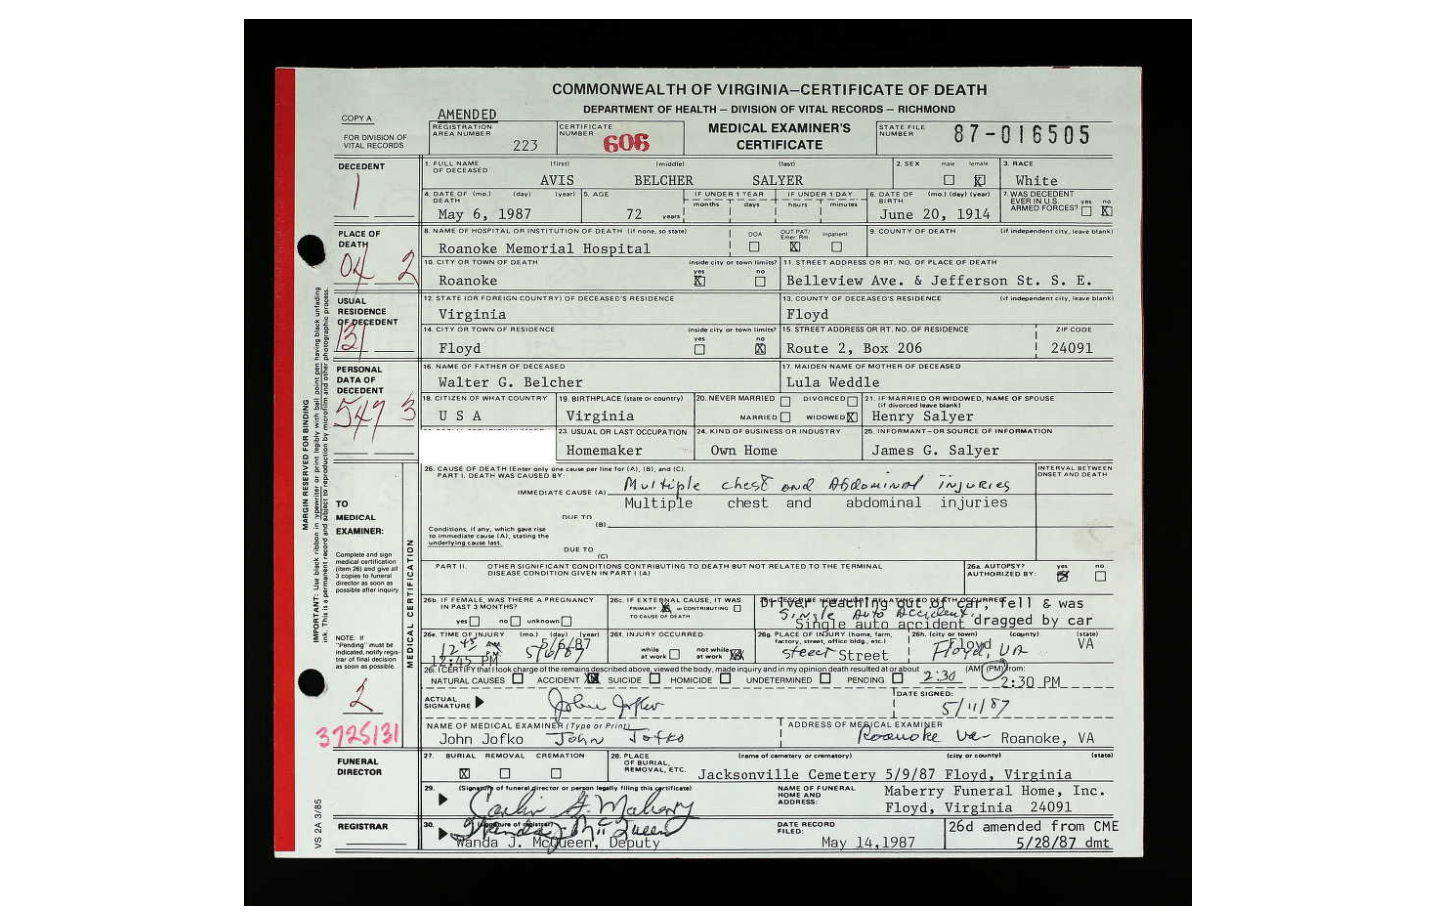 COMMONWEALTH OF VIRGINIA—CERTIFICATE OF DEATH
DEPARTMENT OF HEALTH — DIVISION OF VITAL RECORDS — RICHMOND
COPY A
FOR DIVISION OF VITAL RECORDS
AMENDED
REGISTRATION AREA NUMBER 223
CERTIFICATE NUMBER 606
MEDICAL EXAMINER'S CERTIFICATE
STATE FILE NUMBER 87-016505
DECEDENT
1
1. FULL NAME OF DECEASED (first) (middle) (last)
AVIS BELCHER SALYER
2. SEX male female X
3. RACE
White
4. DATE OF DEATH (mo.) (day) (year)
May 6, 1987
5. AGE
72 years
IF UNDER 1 YEAR months days
IF UNDER 1 DAY hours minutes
6. DATE OF BIRTH (mo.) (day) (year)
June 20, 1914
7. WAS DECEDENT EVER IN U.S. ARMED FORCES? yes no X
PLACE OF DEATH
04 2
8. NAME OF HOSPITAL OR INSTITUTION OF DEATH (if none, so state)
Roanoke Memorial Hospital
DOA OUT PAT/ Emer. Rm. X Inpatient
9. COUNTY OF DEATH (if independent city, leave blank)
10. CITY OR TOWN OF DEATH inside city or town limits? yes X no
Roanoke
11. STREET ADDRESS OR RT. NO. OF PLACE OF DEATH
Belleview Ave. & Jefferson St. S. E.
USUAL RESIDENCE OF DECEDENT
131
12. STATE (OR FOREIGN COUNTRY) OF DECEASED'S RESIDENCE
Virginia
13. COUNTY OF DECEASED'S RESIDENCE (if independent city, leave blank)
Floyd
14. CITY OR TOWN OF RESIDENCE inside city or town limits? yes no X
Floyd
15. STREET ADDRESS OR RT. NO. OF RESIDENCE ZIP CODE
Route 2, Box 206 24091
PERSONAL DATA OF DECEDENT
547 3
16. NAME OF FATHER OF DECEASED
Walter G. Belcher
17. MAIDEN NAME OF MOTHER OF DECEASED
Lula Weddle
18. CITIZEN OF WHAT COUNTRY
U S A
19. BIRTHPLACE (state or country)
Virginia
20. NEVER MARRIED DIVORCED
MARRIED WIDOWED X
21. IF MARRIED OR WIDOWED, NAME OF SPOUSE (if divorced leave blank)
Henry Salyer
23. USUAL OR LAST OCCUPATION
Homemaker
24. KIND OF BUSINESS OR INDUSTRY
Own Home
25. INFORMANT—OR SOURCE OF INFORMATION
James G. Salyer
MARGIN RESERVED FOR BINDING
IMPORTANT: Use black ribbon in typewriter or print legibly with ball point pen having black unfading ink. This is a permanent record and subject to reproduction by microfilm and other photographic process.
TO MEDICAL EXAMINER:
Complete and sign medical certification (item 26) and give all 3 copies to funeral director as soon as possible after inquiry.
NOTE: If "Pending" must be indicated, notify registrar of final decision as soon as possible.
2
3725131
MEDICAL CERTIFICATION
26. CAUSE OF DEATH (Enter only one cause per line for (A), (B), and (C).
PART I. DEATH WAS CAUSED BY:
INTERVAL BETWEEN ONSET AND DEATH
Multiple chest and Abdominal injuries
IMMEDIATE CAUSE (A)
Multiple chest and abdominal injuries
DUE TO
(B)
Conditions, if any, which gave rise to immediate cause (A), stating the underlying cause last.
DUE TO
(C)
PART II. OTHER SIGNIFICANT CONDITIONS CONTRIBUTING TO DEATH BUT NOT RELATED TO THE TERMINAL DISEASE CONDITION GIVEN IN PART I (A)
26a. AUTOPSY? AUTHORIZED BY: yes X no
26b. IF FEMALE, WAS THERE A PREGNANCY IN PAST 3 MONTHS?
yes no unknown
26c. IF EXTERNAL CAUSE, IT WAS
PRIMARY X or CONTRIBUTING
TO CAUSE OF DEATH
Driver reaching out of car, fell & was
Single Auto Accident
Single auto accident dragged by car
26e. TIME OF INJURY (mo.) (day) (year)
12:45 PM 5/6/87
12:45 PM
26f. INJURY OCCURRED
while at work not while at work X
26g. PLACE OF INJURY (home, farm, factory, street, office bldg., etc.)
street Street
26h. (city or town) (county) (state)
Floyd, VA Floyd VA
26i. I CERTIFY that I took charge of the remains described above, viewed the body, made inquiry and in my opinion death resulted at or about 2:30 (AM) (PM) from:
NATURAL CAUSES ACCIDENT X SUICIDE HOMICIDE UNDETERMINED PENDING 2:30 PM
ACTUAL SIGNATURE John Jofko
DATE SIGNED: 5/11/87
NAME OF MEDICAL EXAMINER (Type or Print)
John Jofko John Jofko
ADDRESS OF MEDICAL EXAMINER
Roanoke Va Roanoke, VA
FUNERAL DIRECTOR
27. BURIAL REMOVAL CREMATION
X
28. PLACE OF BURIAL, REMOVAL, ETC. (name of cemetery or crematory) (city or county) (state)
Jacksonville Cemetery 5/9/87 Floyd, Virginia
29. (Signature of funeral director or person legally filing this certificate)
NAME OF FUNERAL HOME AND ADDRESS:
Maberry Funeral Home, Inc.
Floyd, Virginia 24091
VS 2A 3/85
REGISTRAR
30. (Signature of registrar)
Wanda J. McQueen
Wanda J. McQueen, Deputy
DATE RECORD FILED:
May 14, 1987
26d amended from CME
5/28/87 dmt